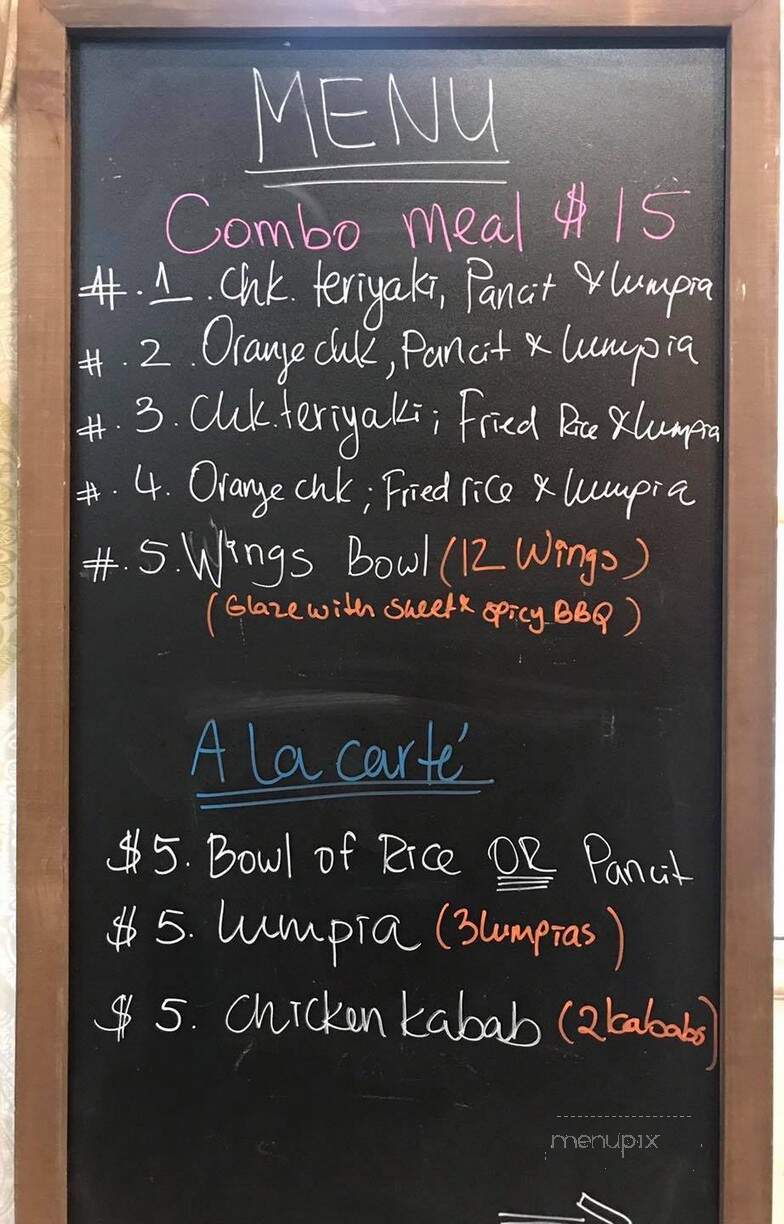 MENU
Combo meal $15
#.1. Chk. teriyaki, Pancit & lumpia
#.2. Orange chk, Pancit & lumpia
#.3. Chk. teriyaki; Fried Rice & lumpia
#.4. Orange chk; Fried rice & lumpia
#.5. Wings Bowl (12 Wings)
(Glaze with sweet & spicy BBQ)
A la carté
$5. Bowl of Rice OR Pancit
$5. lumpia (3 lumpias)
$5. Chicken kabab (2 kababs)
menupix